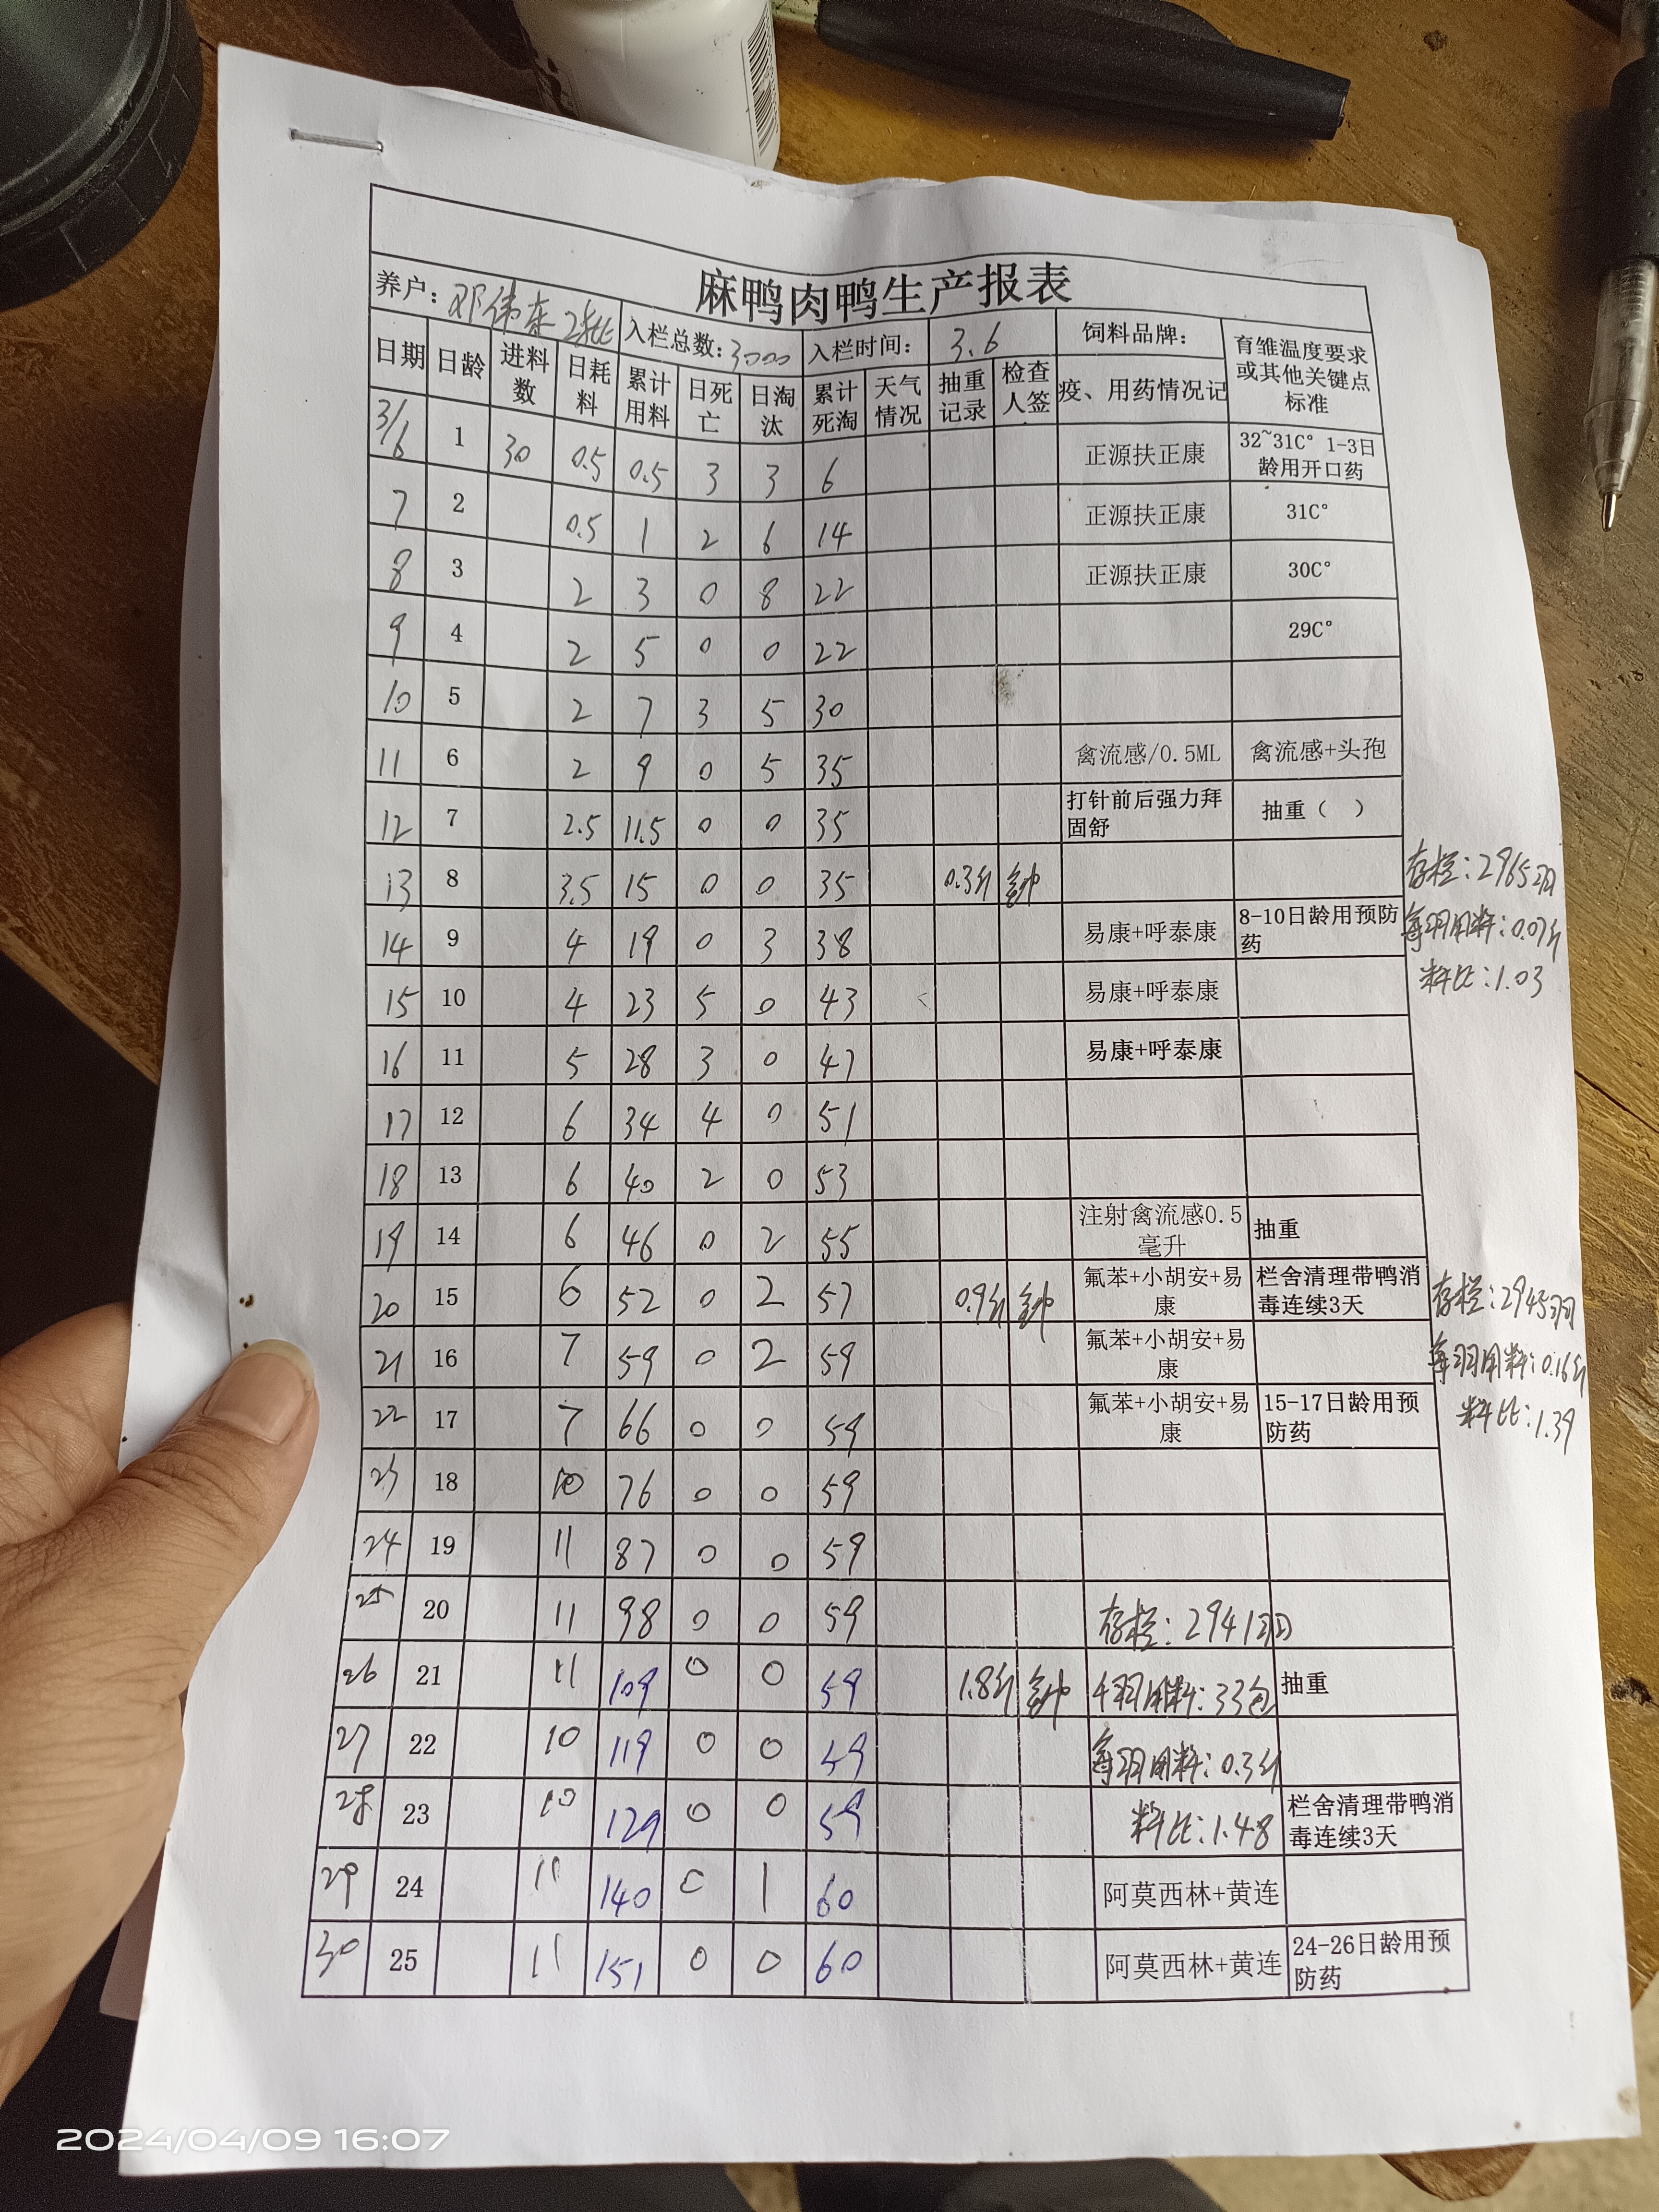 麻鸭肉鸭生产报表
养户: 邓伟东2批 入栏总数: 3000 入栏时间: 3.6 饲料品牌: 育雏温度要求或其他关键点标准
日期 日龄 进料数 日耗料 累计用料 日死亡 日淘汰 累计死淘 天气情况 抽重记录 检查人签 疫、用药情况记
3/6 1 30 0.5 0.5 3 3 6 正源扶正康 32~31C° 1-3日龄用开口药
7 2 0.5 1 2 6 14 正源扶正康 31C°
8 3 2 3 0 8 22 正源扶正康 30C°
9 4 2 5 0 0 22 29C°
10 5 2 7 3 5 30
11 6 2 9 0 5 35 禽流感/0.5ML 禽流感+头孢
12 7 2.5 11.5 0 0 35 打针前后强力拜固舒 抽重（ ）
13 8 3.5 15 0 0 35 0.3斤 存栏:2965羽
14 9 4 19 0 3 38 易康+呼泰康 8-10日龄用预防药 每羽用料:0.07斤
15 10 4 23 5 0 43 易康+呼泰康 料比:1.03
16 11 5 28 3 0 47 易康+呼泰康
17 12 6 34 4 0 51
18 13 6 40 2 0 53
19 14 6 46 0 2 55 注射禽流感0.5毫升 抽重
20 15 6 52 0 2 57 0.9斤 氟苯+小胡安+易康 栏舍清理带鸭消毒连续3天 存栏:2945羽
21 16 7 59 0 2 59 氟苯+小胡安+易康 每羽用料:0.16斤
22 17 7 66 0 0 59 氟苯+小胡安+易康 15-17日龄用预防药 料比:1.39
23 18 10 76 0 0 59
24 19 11 87 0 0 59
25 20 11 98 0 0 59 存栏:2941羽
26 21 11 109 0 0 59 1.8斤 千羽用料:33包 抽重
27 22 10 119 0 0 59 每羽用料:0.3斤
28 23 10 129 0 0 59 料比:1.48 栏舍清理带鸭消毒连续3天
29 24 11 140 0 1 60 阿莫西林+黄连
30 25 11 151 0 0 60 阿莫西林+黄连 24-26日龄用预防药
2024/04/09 16:07